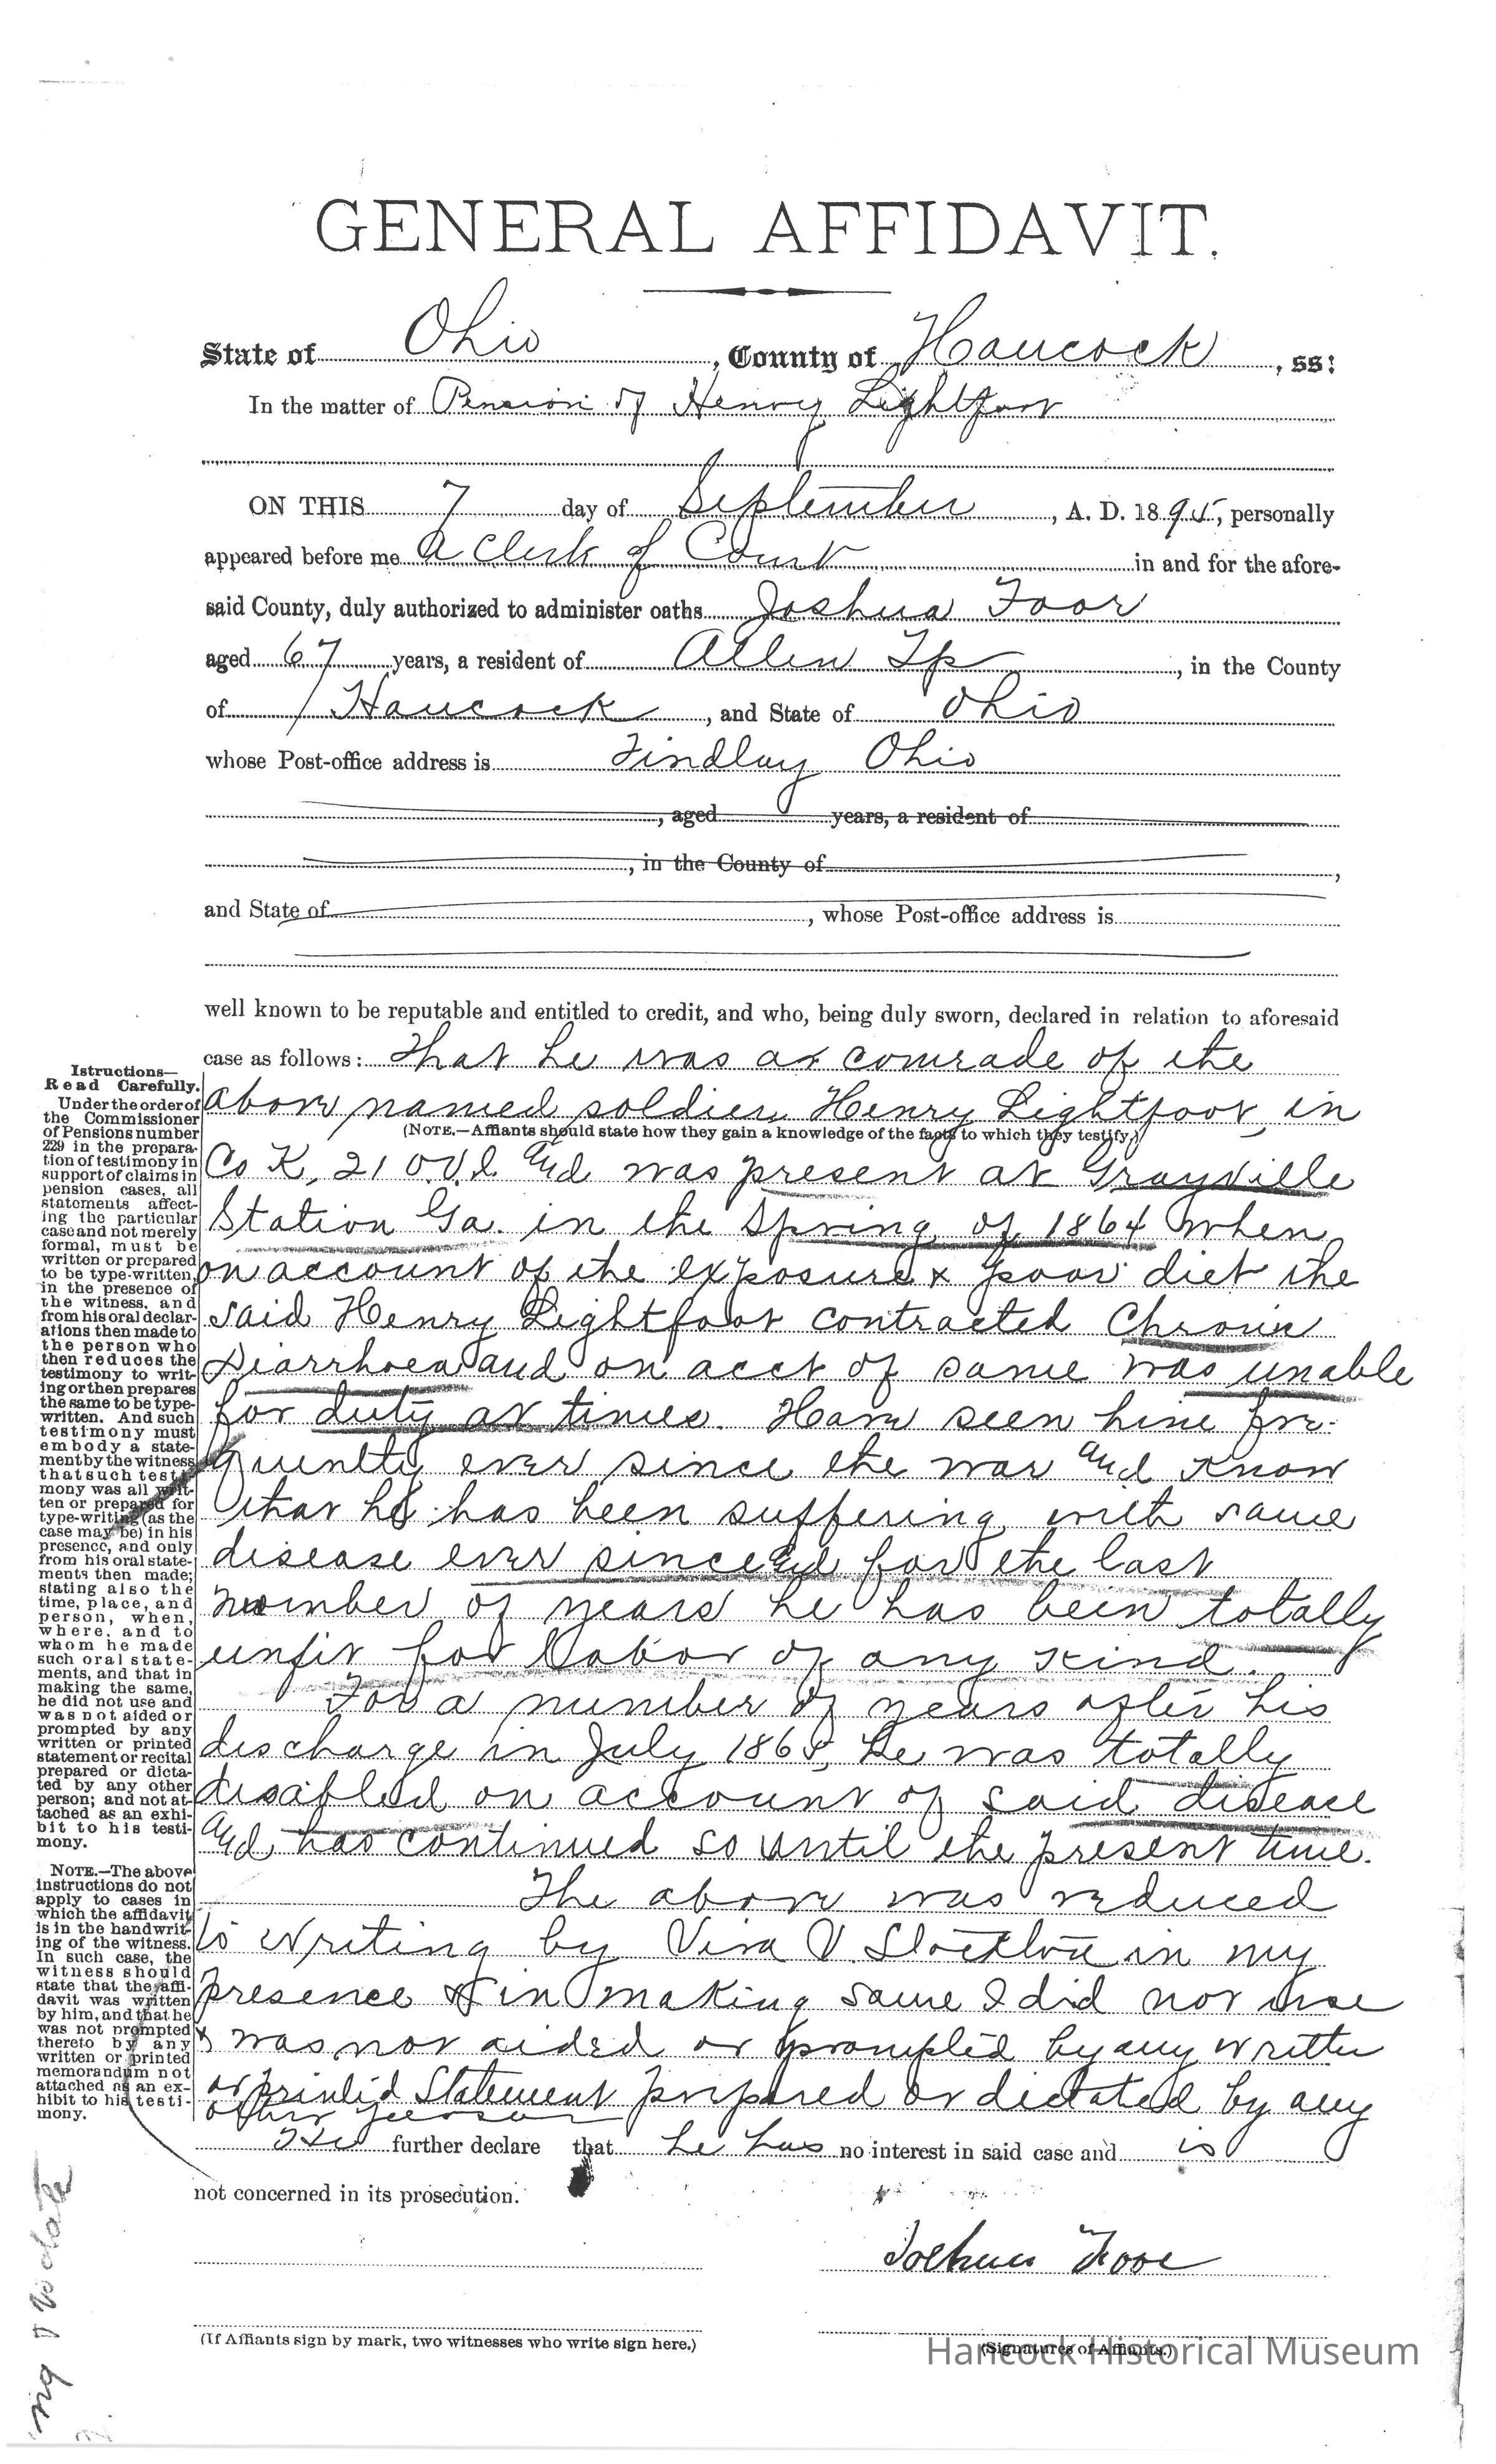 GENERAL AFFIDAVIT.
State of Ohio, County of Hancock, ss:
In the matter of Pension of Henry Lightfoot
ON THIS 7 day of September, A. D. 1895, personally
appeared before me a Clerk of Court in and for the afore-
said County, duly authorized to administer oaths Joshua Foor
aged 67 years, a resident of Allen Tp, in the County
of Hancock, and State of Ohio
whose Post-office address is Findlay Ohio
, aged years, a resident of
, in the County of ,
and State of , whose Post-office address is
well known to be reputable and entitled to credit, and who, being duly sworn, declared in relation to aforesaid
case as follows: That he was a comrade of the
above named soldier, Henry Lightfoot, in
(NOTE.—Affiants should state how they gain a knowledge of the facts to which they testify.)
Co K, 21 O.V.I. and was present at Grayville
Station Ga. in the Spring of 1864 when
on account of the exposure & poor diet the
said Henry Lightfoot contracted Chronic
Diarrhoea and on acct of same was unable
for duty at times. Have seen him fre-
quently ever since the war and know
that he has been suffering with same
disease ever since and for the last
number of years he has been totally
unfit for labor of any kind.
For a number of years after his
discharge in July 1865, he was totally
disabled on account of said disease
and has continued so until the present time.
The above was reduced
to writing by V. Stockton in my
presence & in making same I did not use
& was not aided or prompted by any written
or printed Statement prepared or dictated by any
other person
He further declare that he has no interest in said case and is
not concerned in its prosecution.
Joshua Foor
(If Affiants sign by mark, two witnesses who write sign here.)
(Signatures of Affiants.)
Hancock Historical Museum
Istructions—
Read Carefully.
Under the order of
the Commissioner
of Pensions number
229 in the prepara-
tion of testimony in
support of claims in
pension cases, all
statements affect-
ing the particular
case and not merely
formal, must be
written or prepared
to be type-written,
in the presence of
the witness, and
from his oral declar-
ations then made to
the person who
then reduces the
testimony to writ-
ing or then prepares
the same to be type-
written. And such
testimony must
embody a state-
ment by the witness
that such testi-
mony was all writ-
ten or prepared for
type-writing (as the
case may be) in his
presence, and only
from his oral state-
ments then made;
stating also the
time, place, and
person, when,
where, and to
whom he made
such oral state-
ments, and that in
making the same,
he did not use and
was not aided or
prompted by any
written or printed
statement or recital
prepared or dicta-
ted by any other
person; and not at-
tached as an exhi-
bit to his testi-
mony.
NOTE.—The above
instructions do not
apply to cases in
which the affidavit
is in the handwrit-
ing of the witness.
In such case, the
witness should
state that the affi-
davit was written
by him, and that he
was not prompted
thereto by any
written or printed
memorandum not
attached as an ex-
hibit to his testi-
mony.